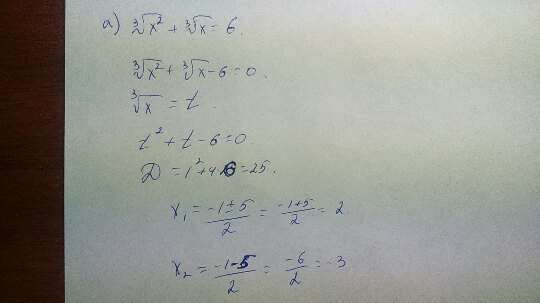 а) ∛x² + ∛x = 6.
∛x² + ∛x - 6 = 0.
∛x = t.
t² + t - 6 = 0.
D = 1² + 4·6 = 25.
x₁ = (-1 ± 5)/2 = (-1+5)/2 = 2
x₂ = (-1-5)/2 = -6/2 = -3